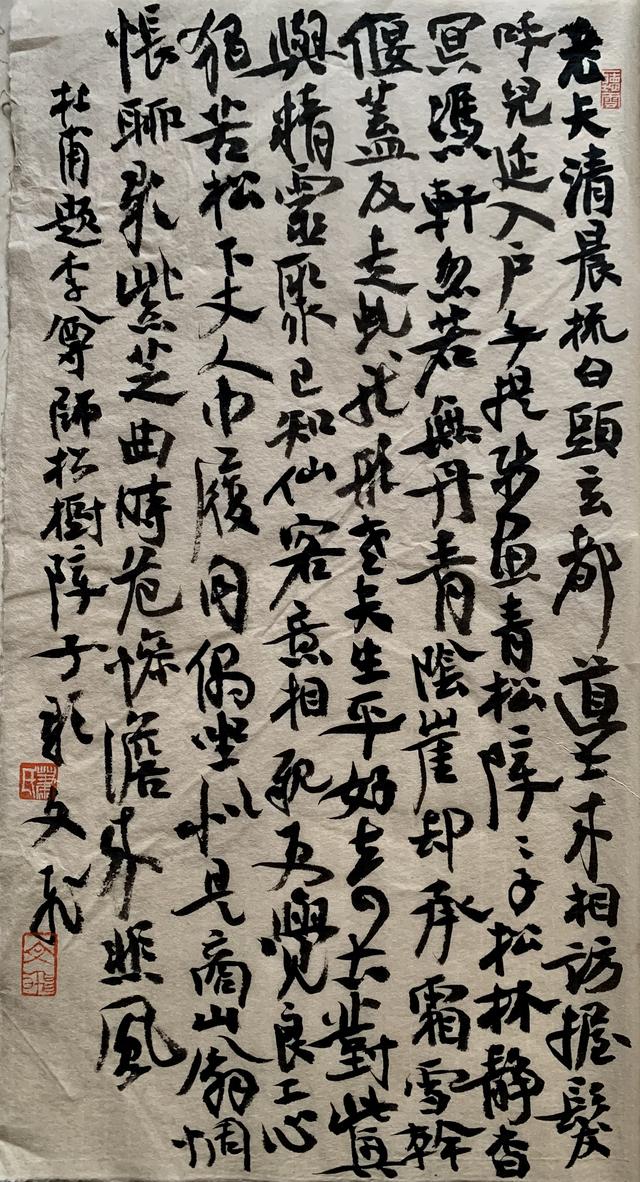 老夫清晨梳白頭玄都道士來相訪握髮
呼兒延入户手提新畫青松障〻子松林靜杳
冥馮軒忽若無丹青陰崖却承霜雪幹
偃蓋反走虬龍形老夫生平好奇古對此興
與精靈聚已知仙客意相親更覺良工心
獨苦松下丈人巾履同偶坐似是商山翁惆
悵聊歌紫芝曲時危慘澹來悲風
杜甫題李尊師松樹障子歌文飛
蕭氏
文飛